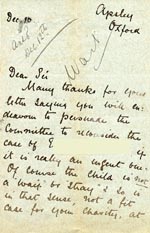 Dec. 10
Apsley
Oxford
Dear Sir
Many thanks for your
letter saying you will en-
deavour to persuade the
Committee to reconsider the
case of E
it is really an urgent one.
Of course the child is not
a "waif" or "Stray", & so is
in that sense, not a fit
case for your charity, at